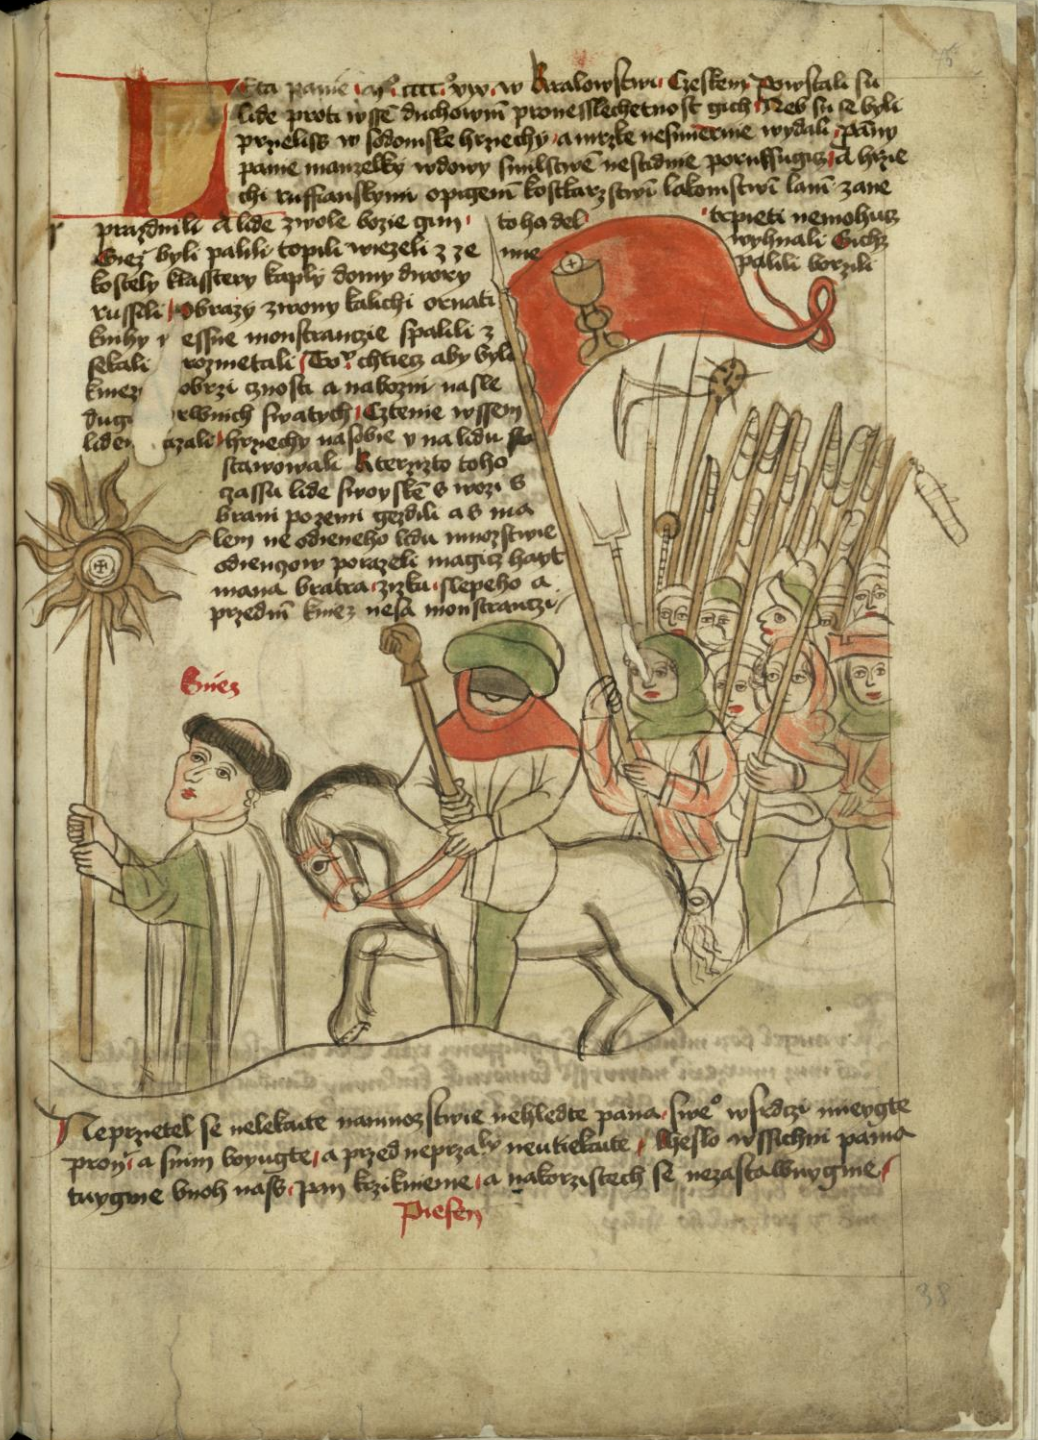 Leta panie w Kralowstwu Czeskem Powstali su
lide proti wsse duchowni pro nesslechetnost gich Neb su se byli
przieliss w sodomske hrziechy a mrzke nesmierne wydali Pany
panie manzelky wdowy smilstwe nestidmie porussugic A hrzie
chi ruffianskymi opigeni kostkarzstwi lakomstwi lani zane
prazdnili A lide zwole bozie gim toho del trpieti nemohuc
byli palili topili wiezeli z ze mie wyhnali Gichz
kostely klasstery kaply domy dwory palili borzili
russili Obrazy zwony kalichi ornati
knihy y essne monstranczie spalili z
sekali rozmetali chtiec aby byli
kniez obrzi cznosti a nabozni nasle
dugi rwnich swatych Cztenie wssem
liden czali hrziechy na sobie y na lidu
stawowali Kterzizto toho
czassu lide swoyske s wozi s
brani po zemi gezdili a s ma
lem ne odieneho lidu mnozstwie
odienczow porazeli magic hayt
mana bratra zizku slepeho a
przed nim kniez nesa monstranczi
kniez
Neprzietel se nelekaite na mnozstwie nehledte pana sweo w srdczi mieygte
pron a s nim boyugte a przed neprzately neutiekaite Heslo wssichni pama
tuygme buoh nass pan krziknieme a na korzistech se nezastawuygme
Piesen
38